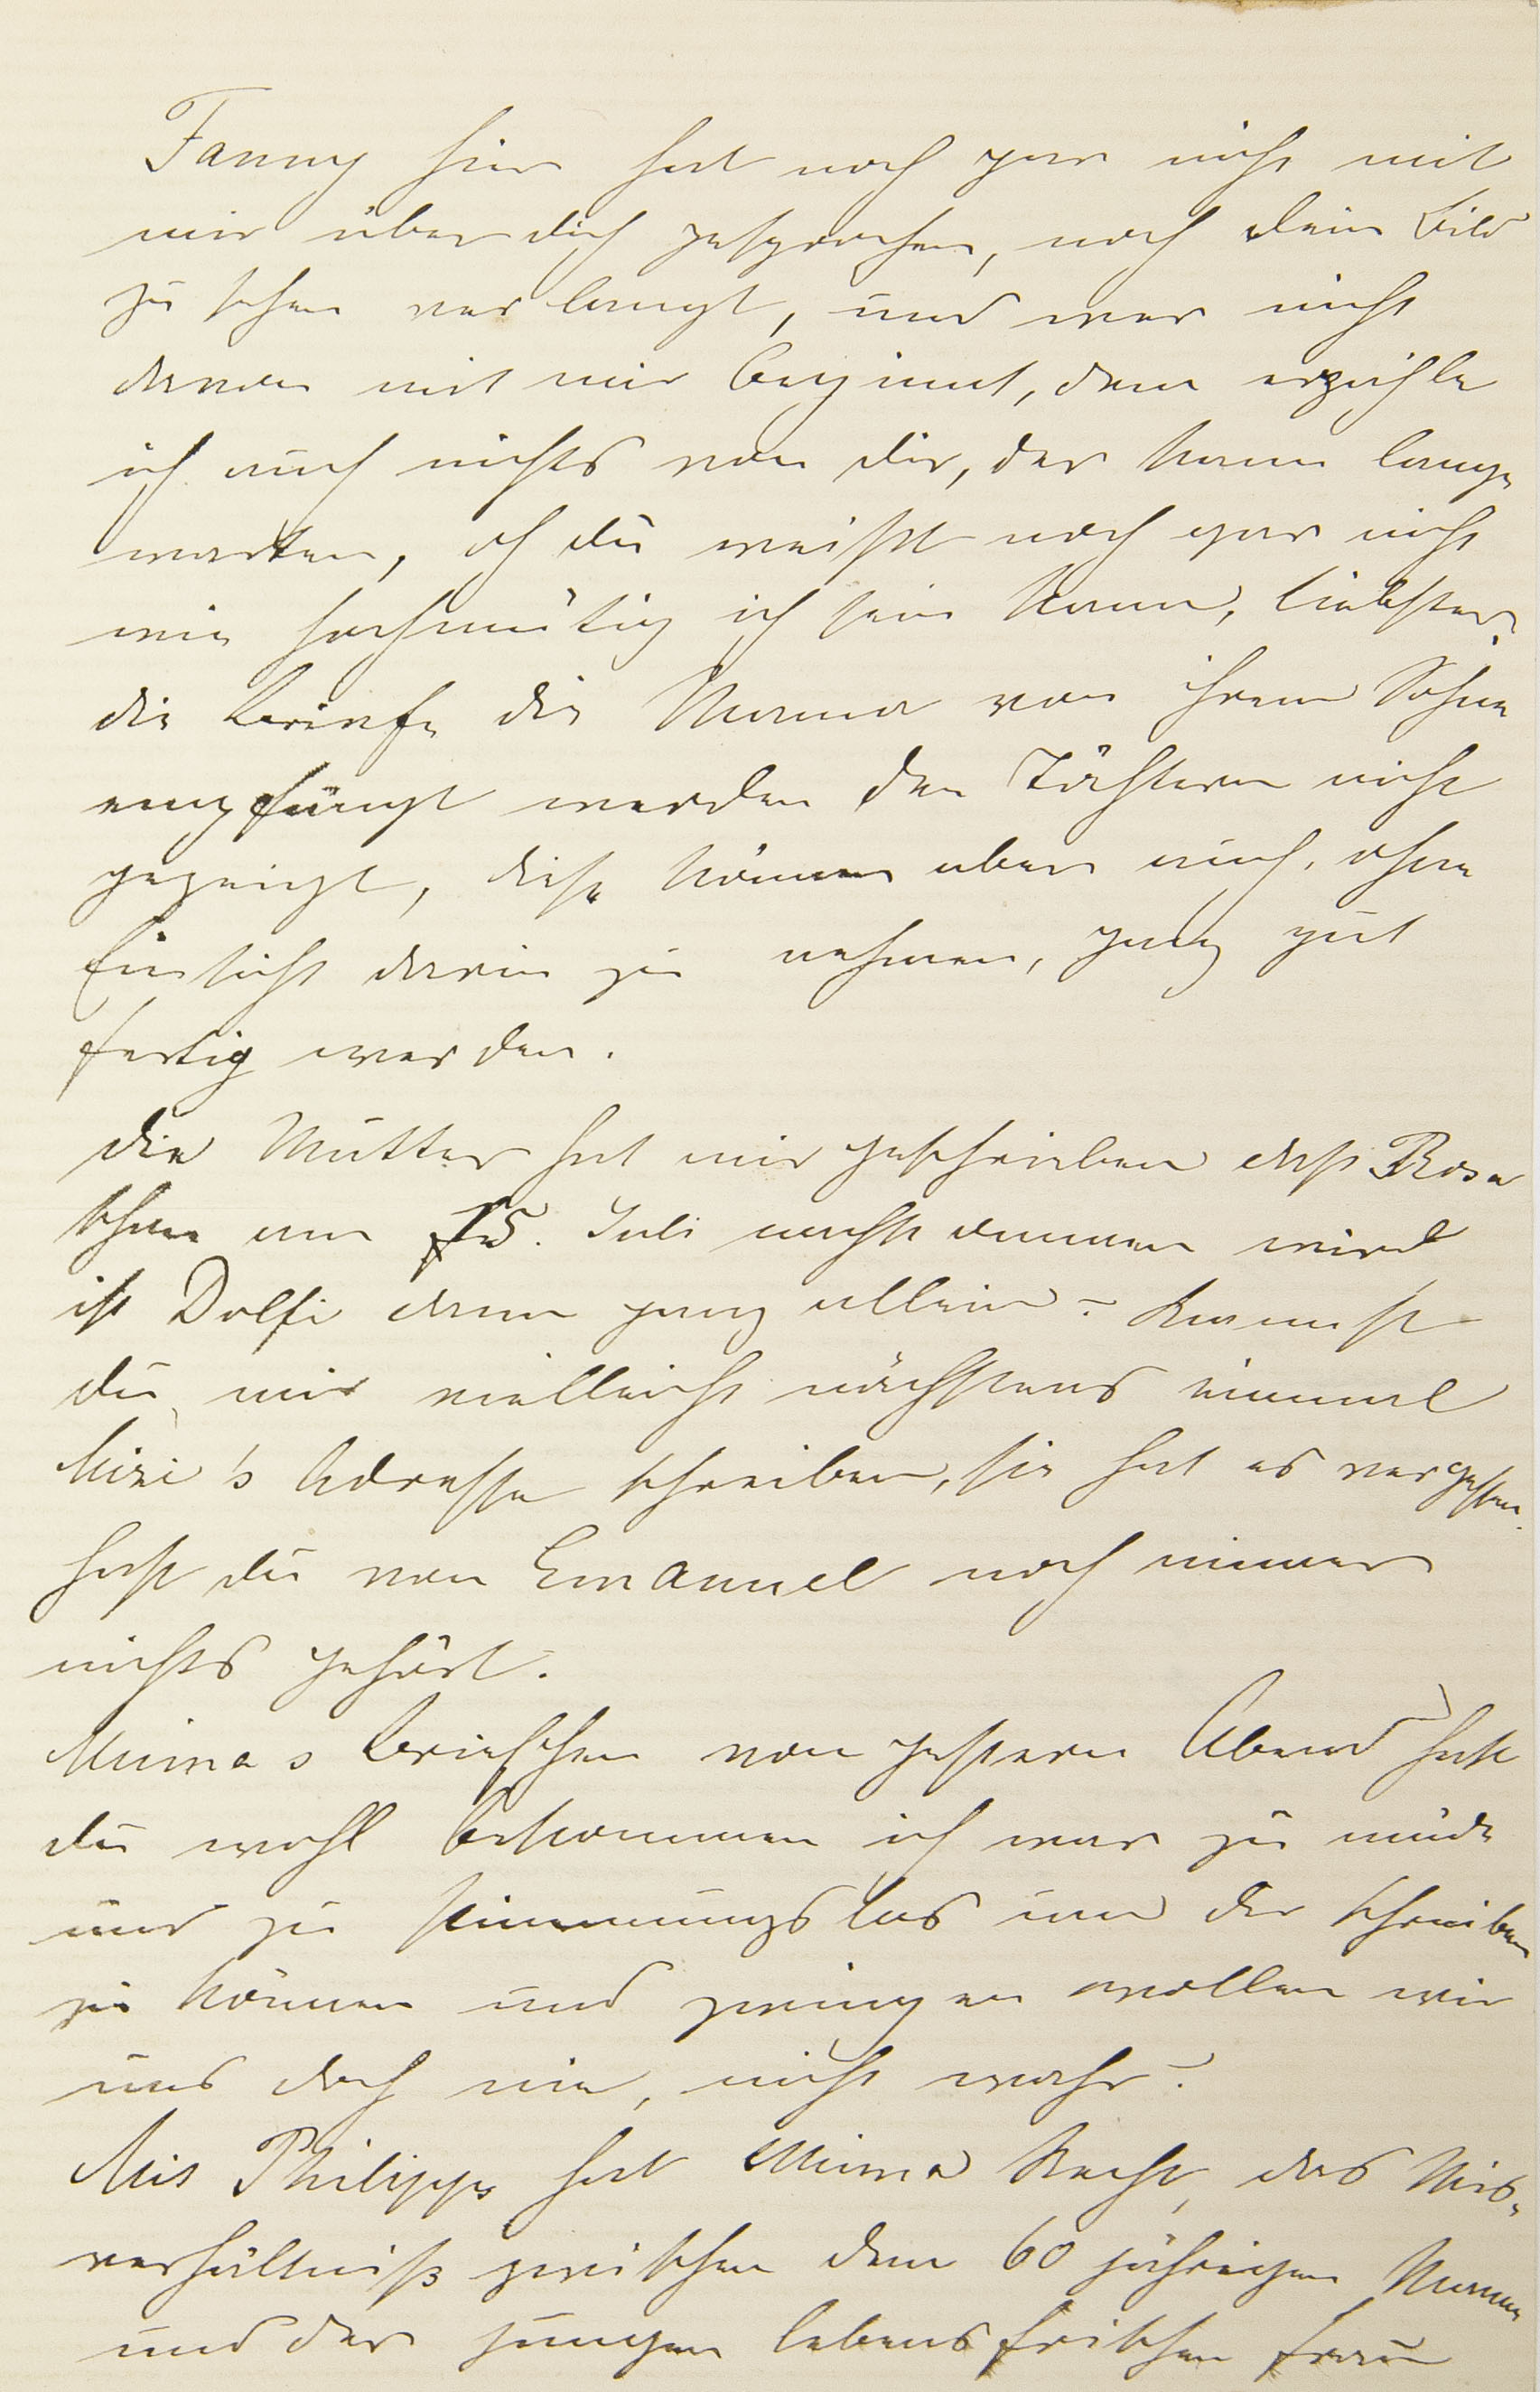 Fanny hier hat noch gar nicht mit
mir über dich gesprochen, noch dein Bild
zu sehen verlangt, und wer nicht
davon mit mir beginnt, dem erzähle
ich auch nichts von dir, der kann lange
warten, oh du weißt noch gar nicht
wie hochmütig ich sein kann, liebster.
die Briefe die Mama von ihrem Sohne
empfängt werden den Töchtern nicht
gezeigt, diese können aber auch, ohne
Einsicht darin zu nehmen, ganz gut
fertig werden.
die Mutter hat mir geschrieben daß Rosa
schon am 15. Juli nachkommen wird
ist Dolfi dann ganz allein? Kannst
du mir vielleicht nächstens einmal
Mizi's Adresse schreiben, sie hat es vergessen.
hast du von Emanuel noch immer
nichts gehört.
Minna's Briefchen von gestern Abend hast
du wohl bekommen ich war zu müde
und zu stimmungslos um dir schreiben
zu können und zwingen wollen wir
uns doch nie, nicht wahr?
Mit Philipp hat Minna Recht, das Mis-
verhältniß zwischen dem 60 jährigen Manne
und der jungen lebensfrischen Frau